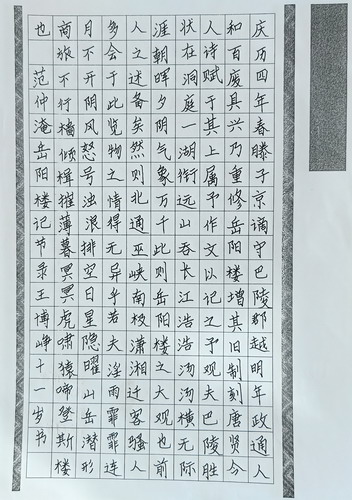 庆历四年春滕子京谪守巴陵郡越明年政通人
和百废具兴乃重修岳阳楼增其旧制刻唐贤今
人诗赋于其上属予作文以记之予观夫巴陵胜
状在洞庭一湖衔远山吞长江浩浩汤汤横无际
涯朝晖夕阴气象万千此则岳阳楼之大观也前
人之述备矣然则北通巫峡南极潇湘迁客骚人
多会于此览物之情得无异乎若夫淫雨霏霏连
月不开阴风怒号浊浪排空日星隐曜山岳潜形
商旅不行樯倾楫摧薄暮冥冥虎啸猿啼登斯楼
也 范仲淹岳阳楼记节录王博峥十一岁书